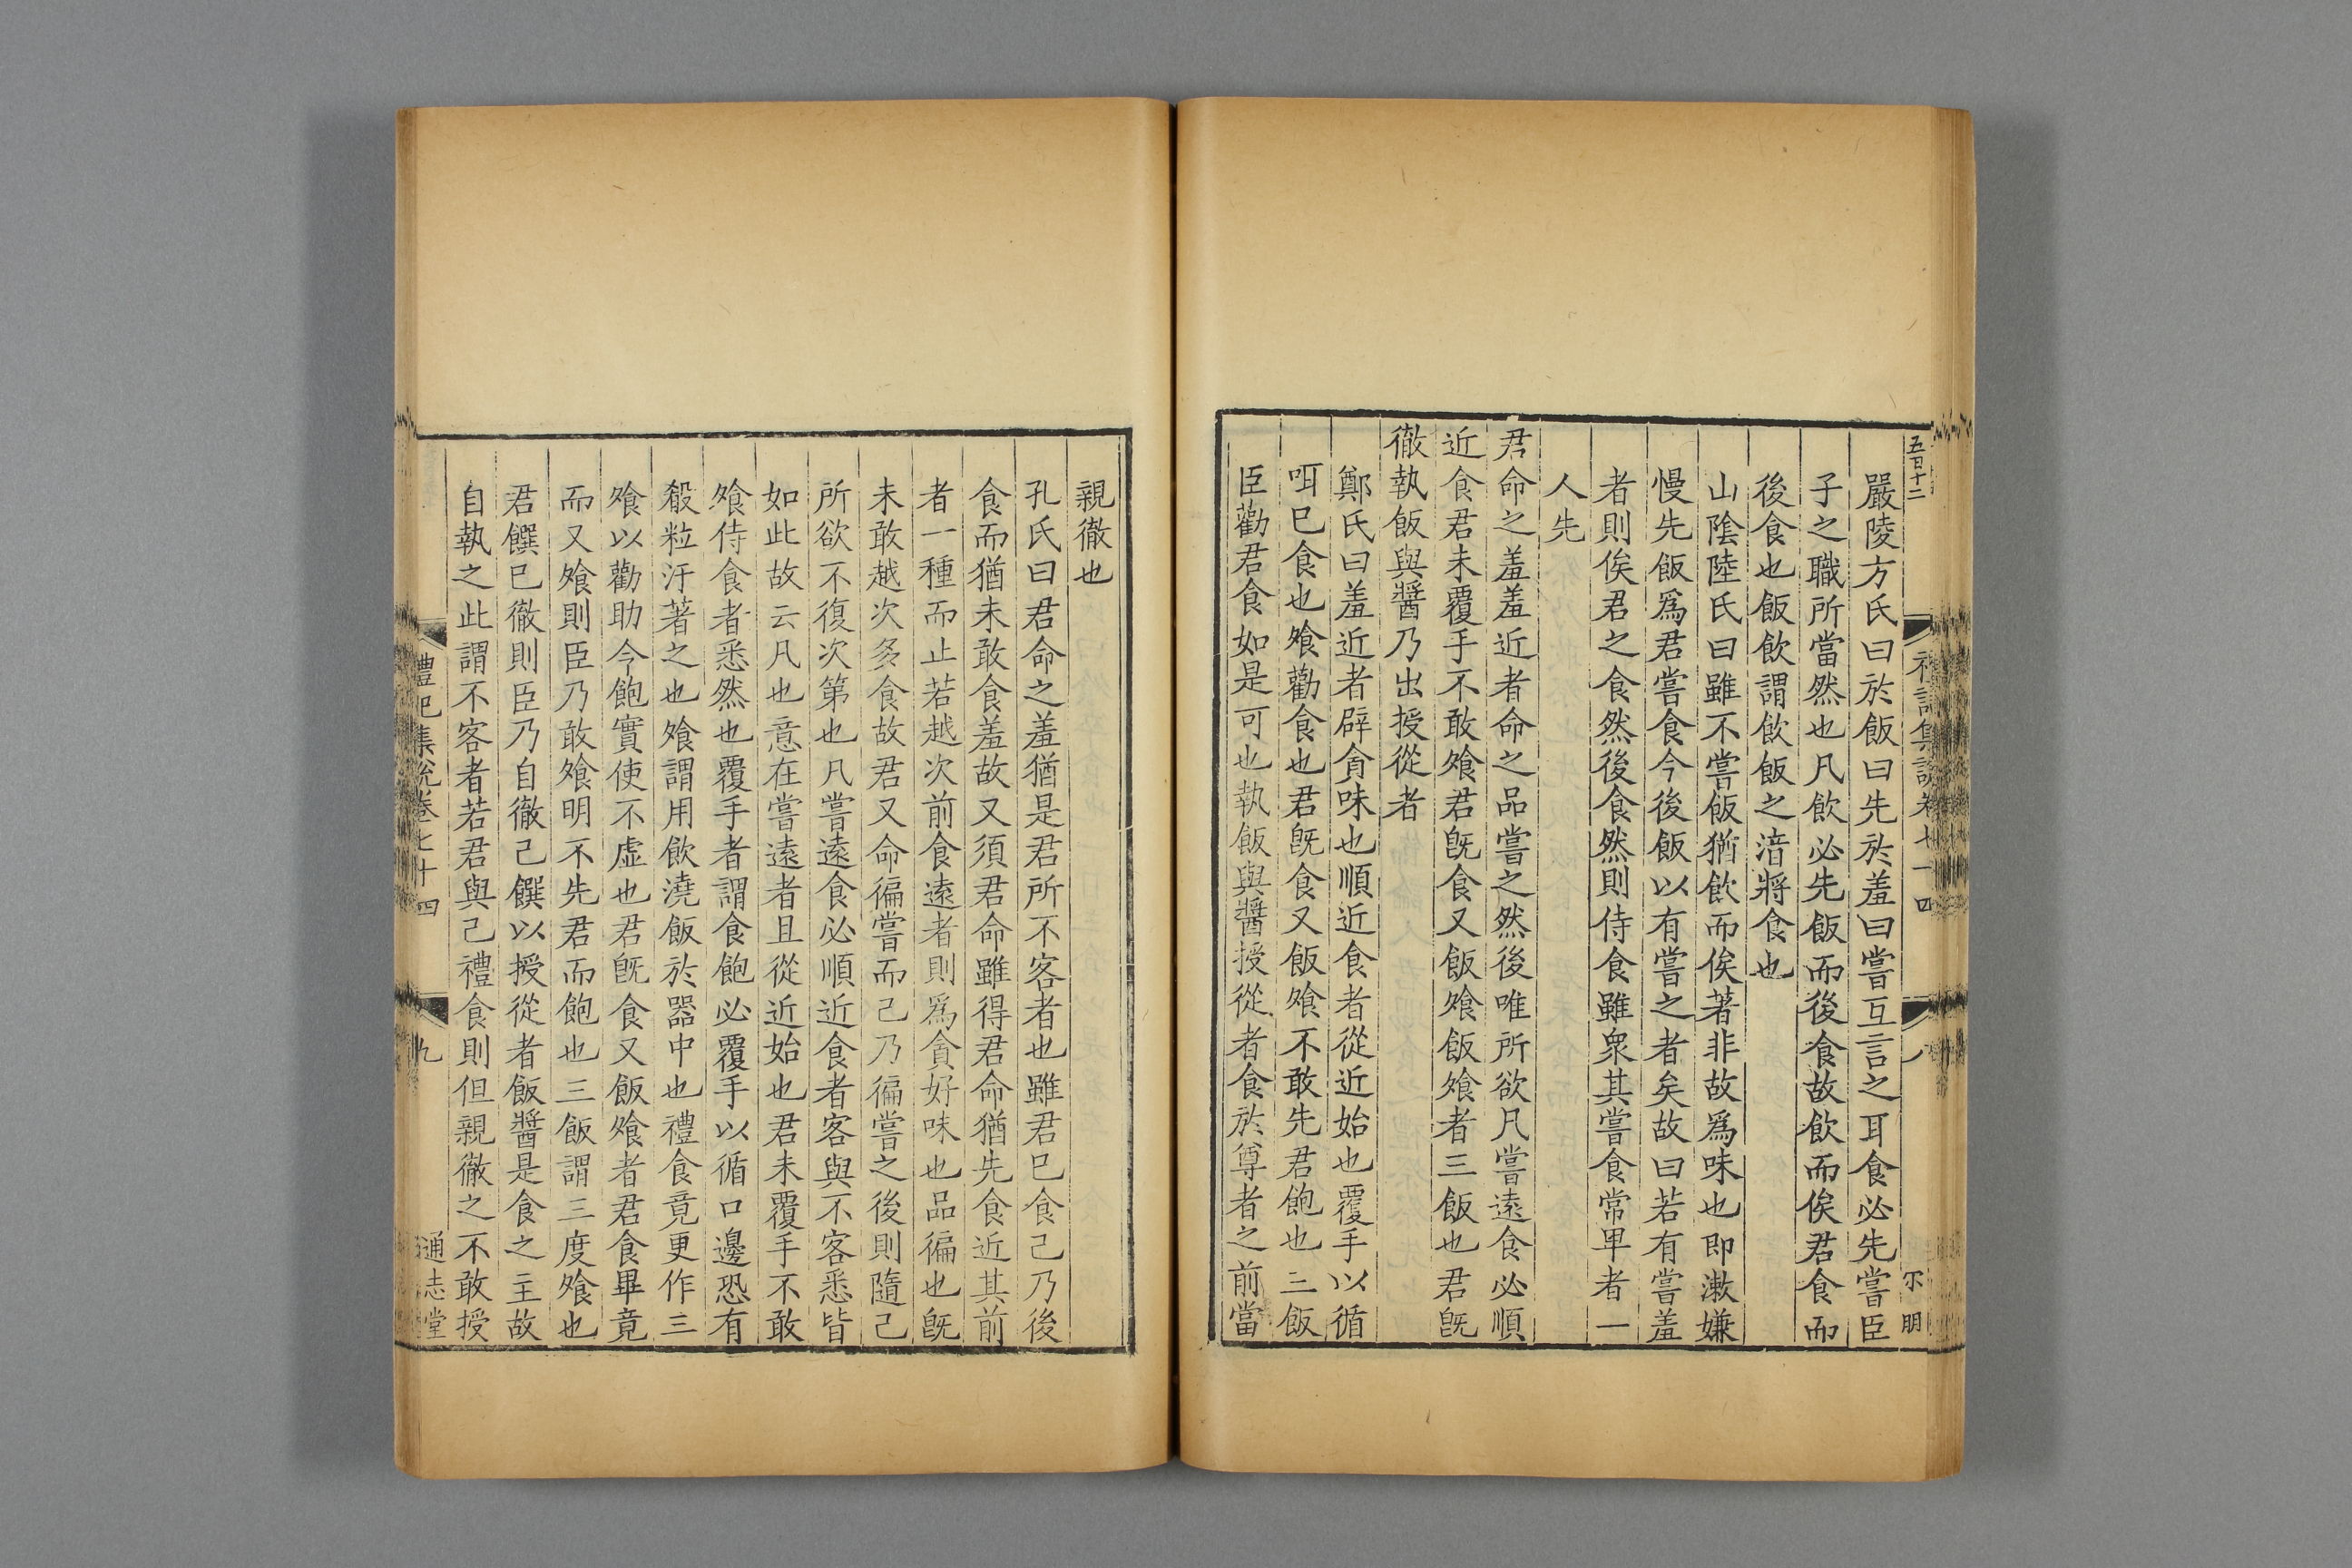 五百十二
禮記集說卷七十四 八 尔明
嚴陵方氏曰於飯曰先於羞曰嘗互言之耳食必先嘗臣
子之職所當然也凡飲必先飯而後食故飲而俟君食而
後食也飯飲謂飲飯之湇將食也
山隂陸氏曰雖不嘗飯猶飲而俟著非故爲味也即漱嫌
慢先飯爲君嘗食今後飯以有嘗之者矣故曰若有嘗羞
者則俟君之食然後食然則侍食雖衆其嘗食常卑者一
人先
君命之羞羞近者命之品嘗之然後唯所欲凡嘗遠食必順
近食君未覆手不敢飧君旣食又飯飧飯飧者三飯也君旣
徹執飯與醬乃出授從者
鄭氏曰羞近者辟貪味也順近食者從近始也覆手以循
咡已食也飧勸食也君旣食又飯飧不敢先君飽也三飯
臣勸君食如是可也執飯與醬授從者食於尊者之前當
親徹也
孔氏曰君命之羞猶是君所不客者也雖君已食己乃後
食而猶未敢食羞故又須君命雖得君命猶先食近其前
者一種而止若越次前食遠者則爲貪好味也品徧也旣
未敢越次多食故君又命徧嘗而己乃徧嘗之後則隨己
所欲不復次第也凡嘗遠食必順近食者客與不客悉皆
如此故云凡也意在嘗遠者且從近始也君未覆手不敢
飧侍食者悉然也覆手者謂食飽必覆手以循口邊恐有
殽粒汙著之也飧謂用飲澆飯於器中也禮食竟更作三
飧以勸助今飽實使不虛也君旣食又飯飧者君食畢竟
而又飧則臣乃敢飧明不先君而飽也三飯謂三度飧也
君饌已徹則臣乃自徹己饌以授從者飯醬是食之主故
自執之此謂不客者若君與己禮食則但親徹之不敢授
禮記集說卷七十四 九 通志堂